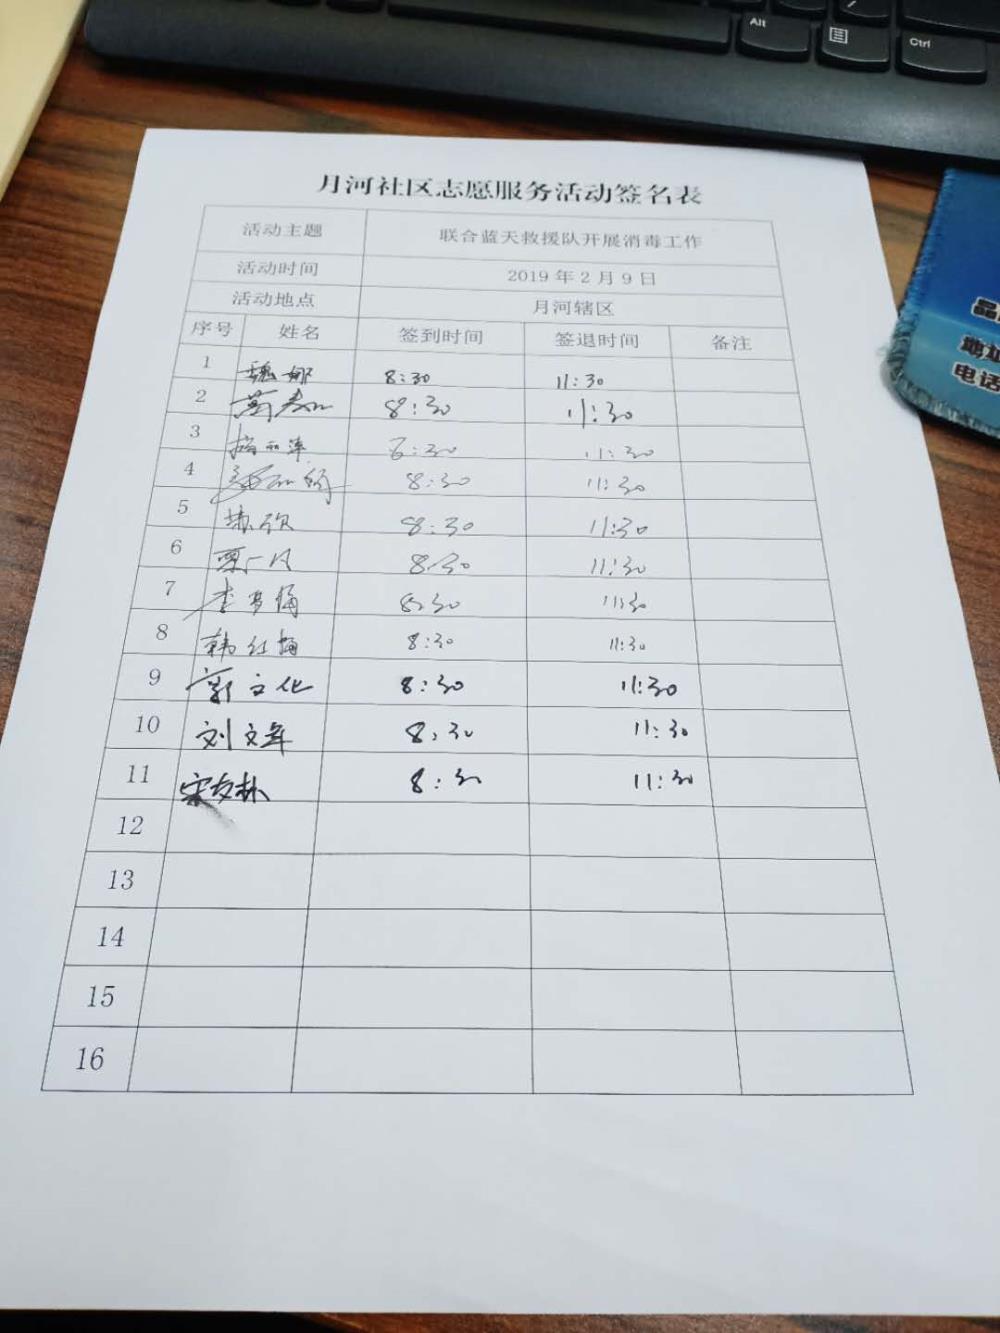 Alt
Ctrl
月河社区志愿服务活动签名表
活动主题 联合蓝天救援队开展消毒工作
活动时间 2019年2月9日
活动地点 月河辖区
序号 姓名 签到时间 签退时间 备注
1 魏娜 8:30 11:30
2 8:30 11:30
3 8:30 11:30
4 8:30 11:30
5 8:30 11:30
6 8:30 11:30
7 李梦楠 8:30 11:30
8 韩红梅 8:30 11:30
9 郭文化 8:30 11:30
10 刘文军 8:30 11:30
11 宋友林 8:30 11:30
12
13
14
15
16
品
地址
电话